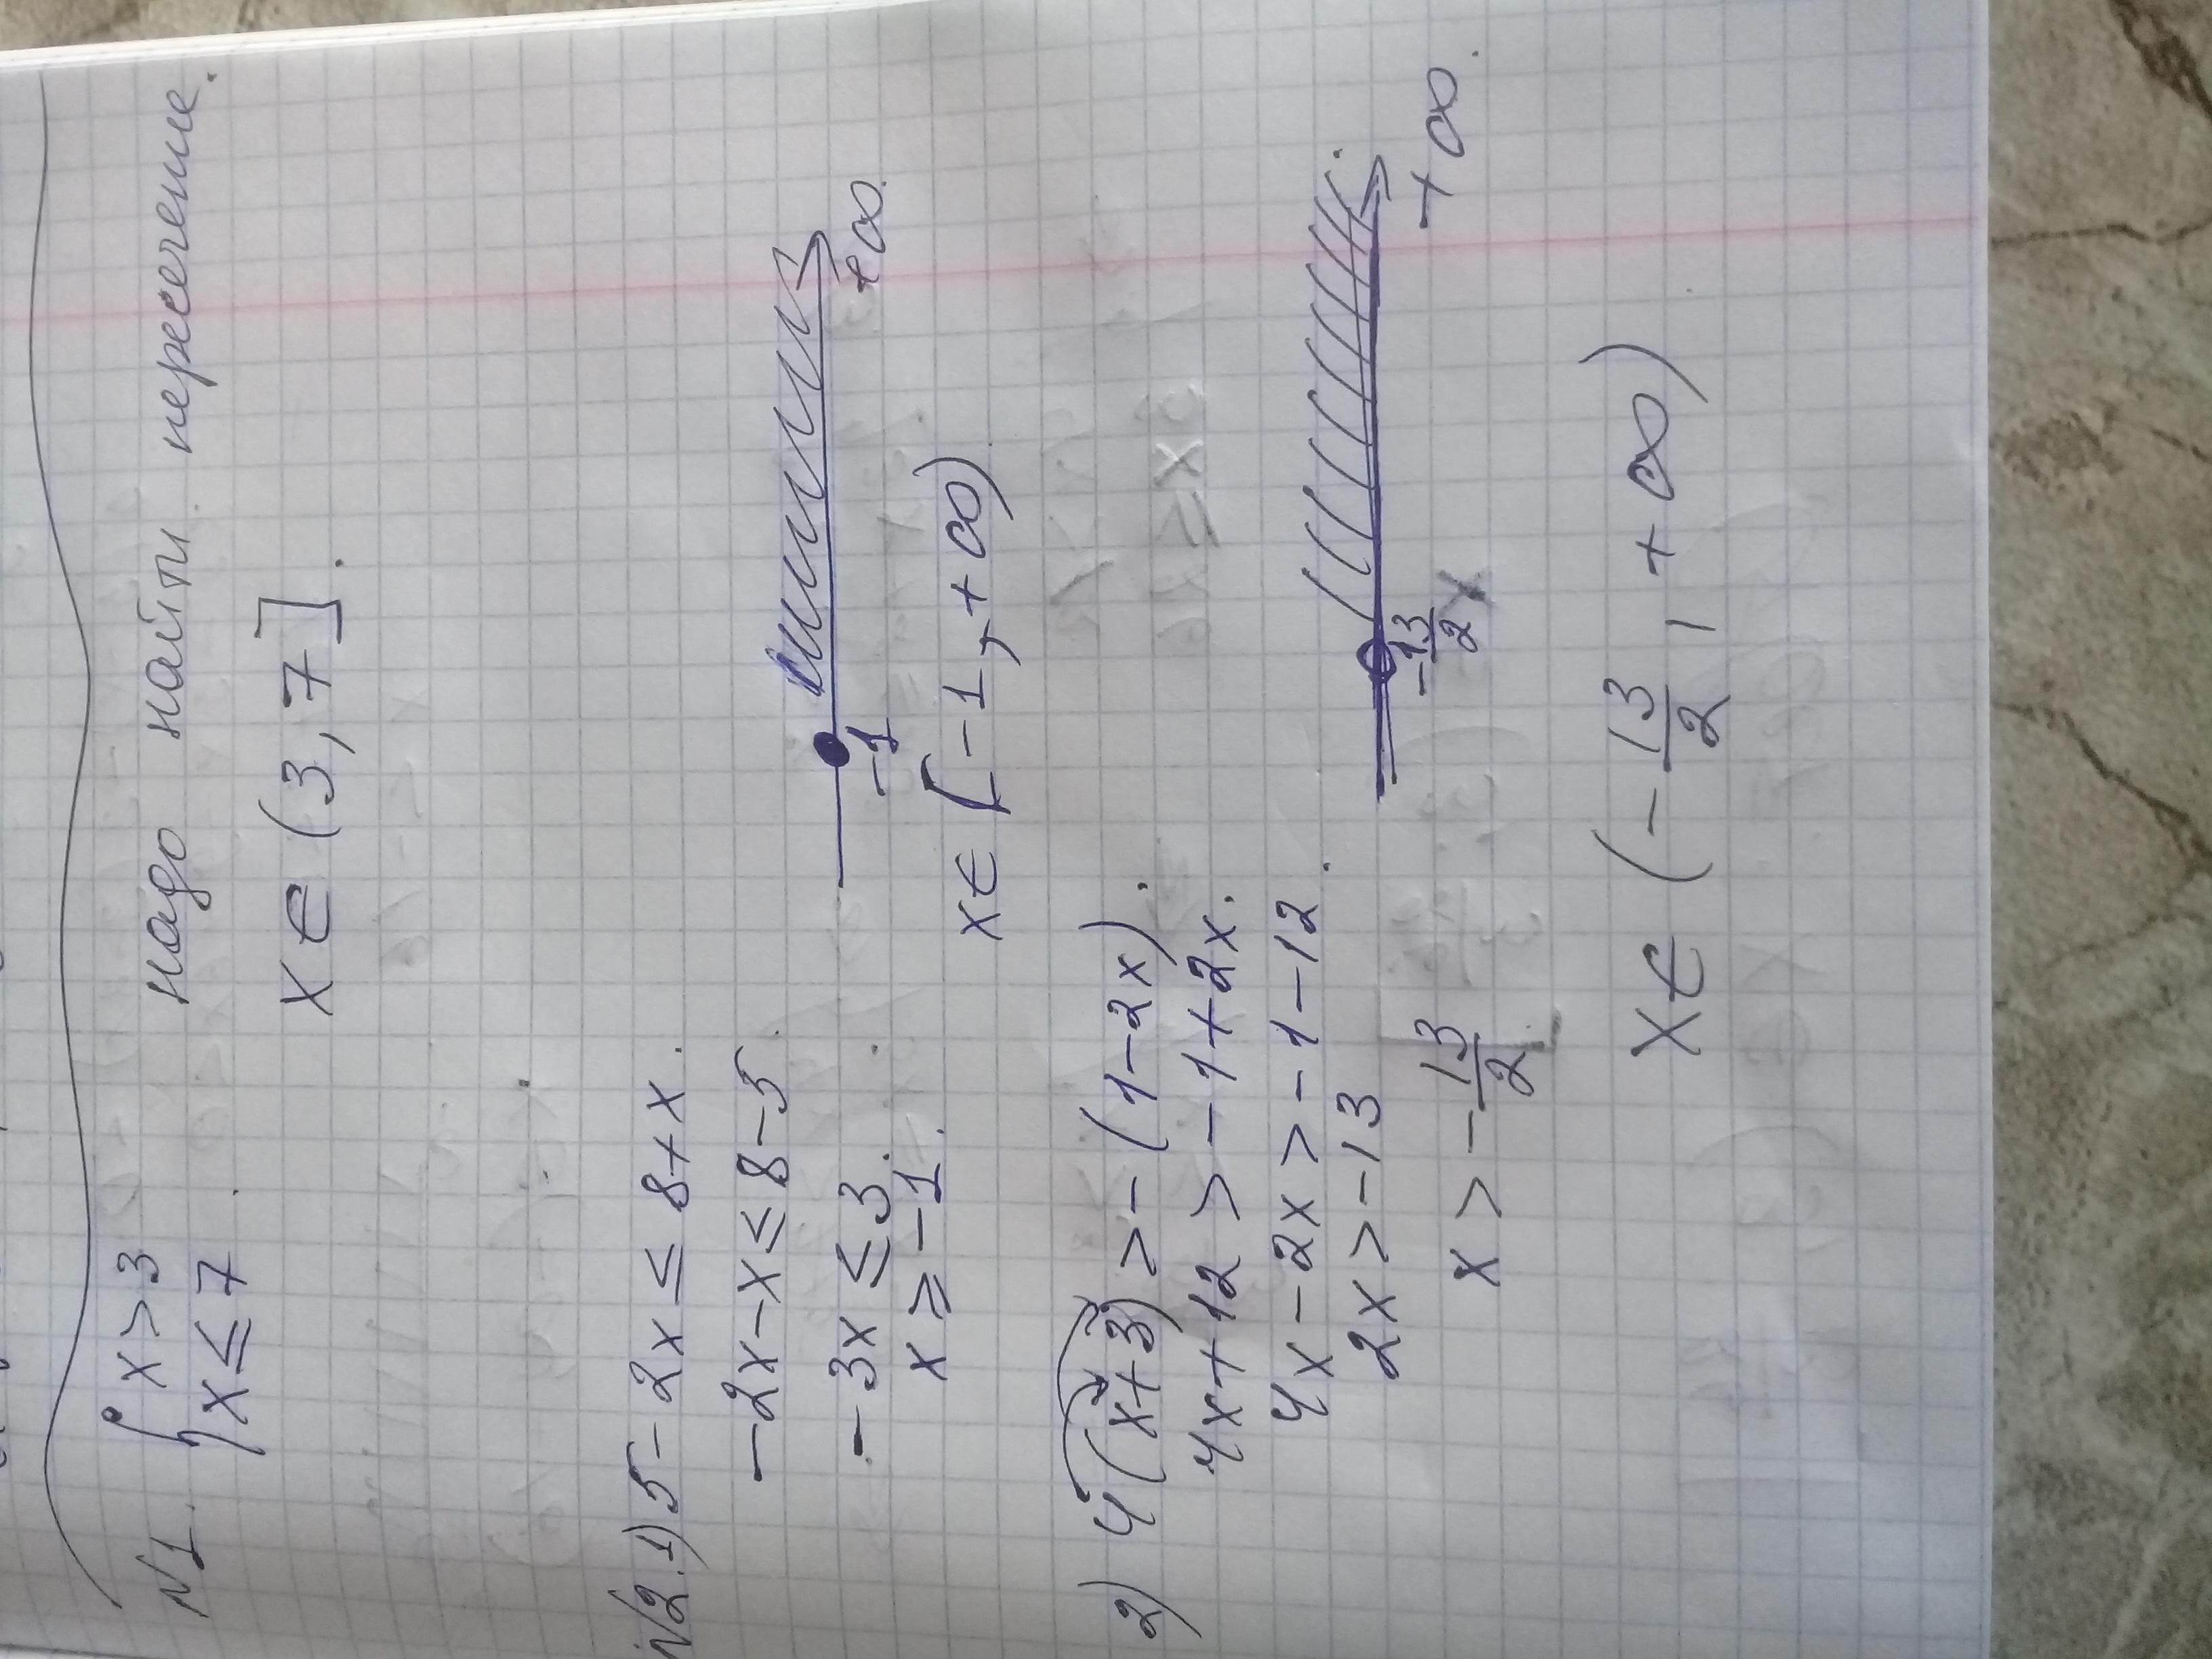 N1. { x > 3
x ≤ 7
надо найти пересечение.
x ∈ (3, 7].
N2. 1) 5 - 2x ≤ 8 + x.
-2x - x ≤ 8 - 5
-3x ≤ 3.
x ⩾ -1.
-1 +∞.
x ∈ [-1, +∞)
2) 4(x+3) > -(1-2x).
4x + 12 > -1 + 2x.
4x - 2x > -1 - 12.
2x > -13
x > -13/2
-13/2 x +∞.
x ∈ (-13/2, +∞)